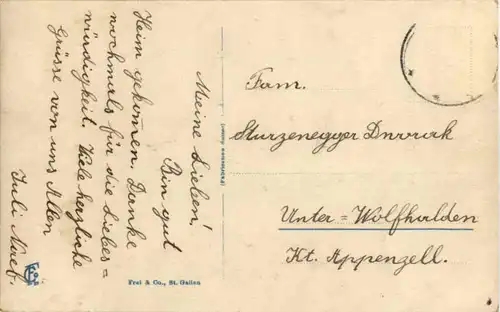 Meine Lieben!
Bin gut
Heim gekommen. Danke
nochmals für die Liebes=
würdigkeit. Viele herzliche
Grüsse von uns Allen
Juli Naef.
Fam.
Sturzenegger Dnvrak
Unter=Wolfhalden
Kt. Appenzell.
Frei & Co., St. Gallen